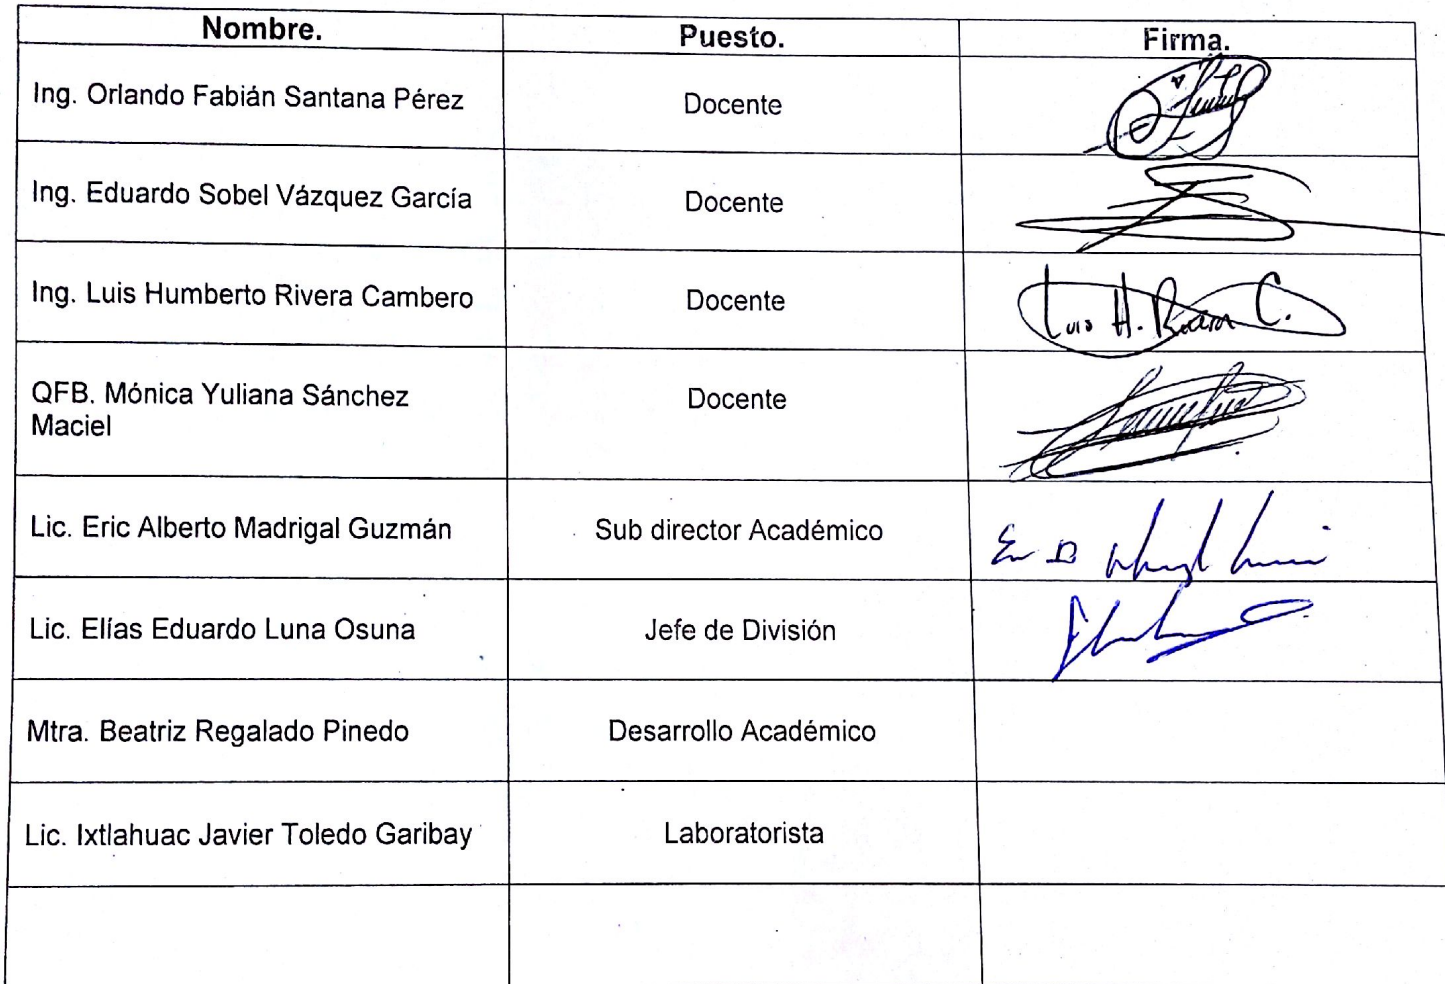 Nombre. Puesto. Firma.
Ing. Orlando Fabián Santana Pérez Docente
Ing. Eduardo Sobel Vázquez García Docente
Ing. Luis Humberto Rivera Cambero Docente Luis H. Rivera C.
QFB. Mónica Yuliana Sánchez Docente
Maciel
Lic. Eric Alberto Madrigal Guzmán Sub director Académico
Lic. Elías Eduardo Luna Osuna Jefe de División
Mtra. Beatriz Regalado Pinedo Desarrollo Académico
Lic. Ixtlahuac Javier Toledo Garibay Laboratorista